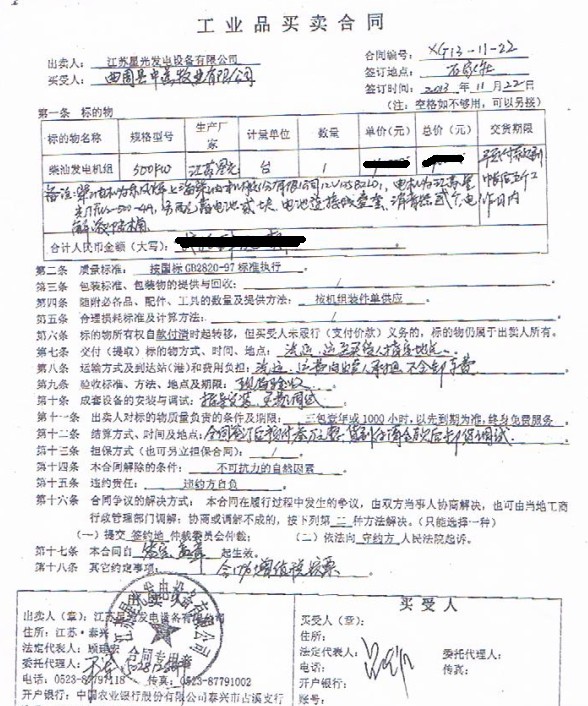 工业品买卖合同
出卖人：江苏星光发电设备有限公司
合同编号：XG13-11-22
买受人：曲周县中嘉牧业有限公司
签订地点：石家庄
签订时间：2013年11月22日
第一条 标的物
（注：空格如不够用，可以另接）
标的物名称 规格型号 生产厂家 计量单位 数量 单价(元) 总价(元) 交货期限
柴油发电机组 500KW 江苏星光 台 1
合计人民币金额（大写）：
第二条 质量标准：按国标GB2820-97标准执行。
第三条 包装标准、包装物的提供与回收：/。
第四条 随附必备品、配件、工具的数量及提供方法：按机组装作单供应
第五条 合理损耗标准及计算方法：/
第六条 标的物所有权自款付清时起转移，但买受人未履行（支付价款）义务的，标的物仍属于出卖人所有。
第七条 交付（提取）标的物方式、时间、地点：汽运，送至买受人指定地点。
第八条 运输方式及到达站(港)和费用负担：汽运，运费由出卖人承担，不含卸车费
第九条 验收标准、方法、地点及期限：现场验收。
第十条 成套设备的安装与调试：指导安装，免费调试
第十一条 出卖人对标的物质量负责的条件及期限：三包壹年或1000小时，以先到期为准，终身免费服务
第十二条 结算方式、时间及地点：
第十三条 担保方式（也可另立担保合同）：/
第十四条 本合同解除的条件：不可抗力的自然因素。
第十五条 违约责任：违约方自负。
第十六条 合同争议的解决方式：本合同在履行过程中发生的争议，由双方当事人协商解决，也可由当地工商
行政管理部门调解；协商或调解不成的，按下列第二种方法解决。（只能选择一种）
（一）提交签约地仲裁委员会仲裁；（二）依法向守约方人民法院起诉。
第十七条 本合同自签字盖章起生效。
第十八条 其它约定事项：含17%增值税发票
出卖人（章）：江苏星光发电设备有限公司
住所：江苏·泰兴
法定代表人：
委托代理人：
电话：0523-87797118 传真：0523-87791002
开户银行：中国农业银行股份有限公司泰兴市古溪支行
合同专用章
买受人
买受人（章）：
住所：
法定代表人：
委托代理人：
电话：
传真：
开户银行：
账号：